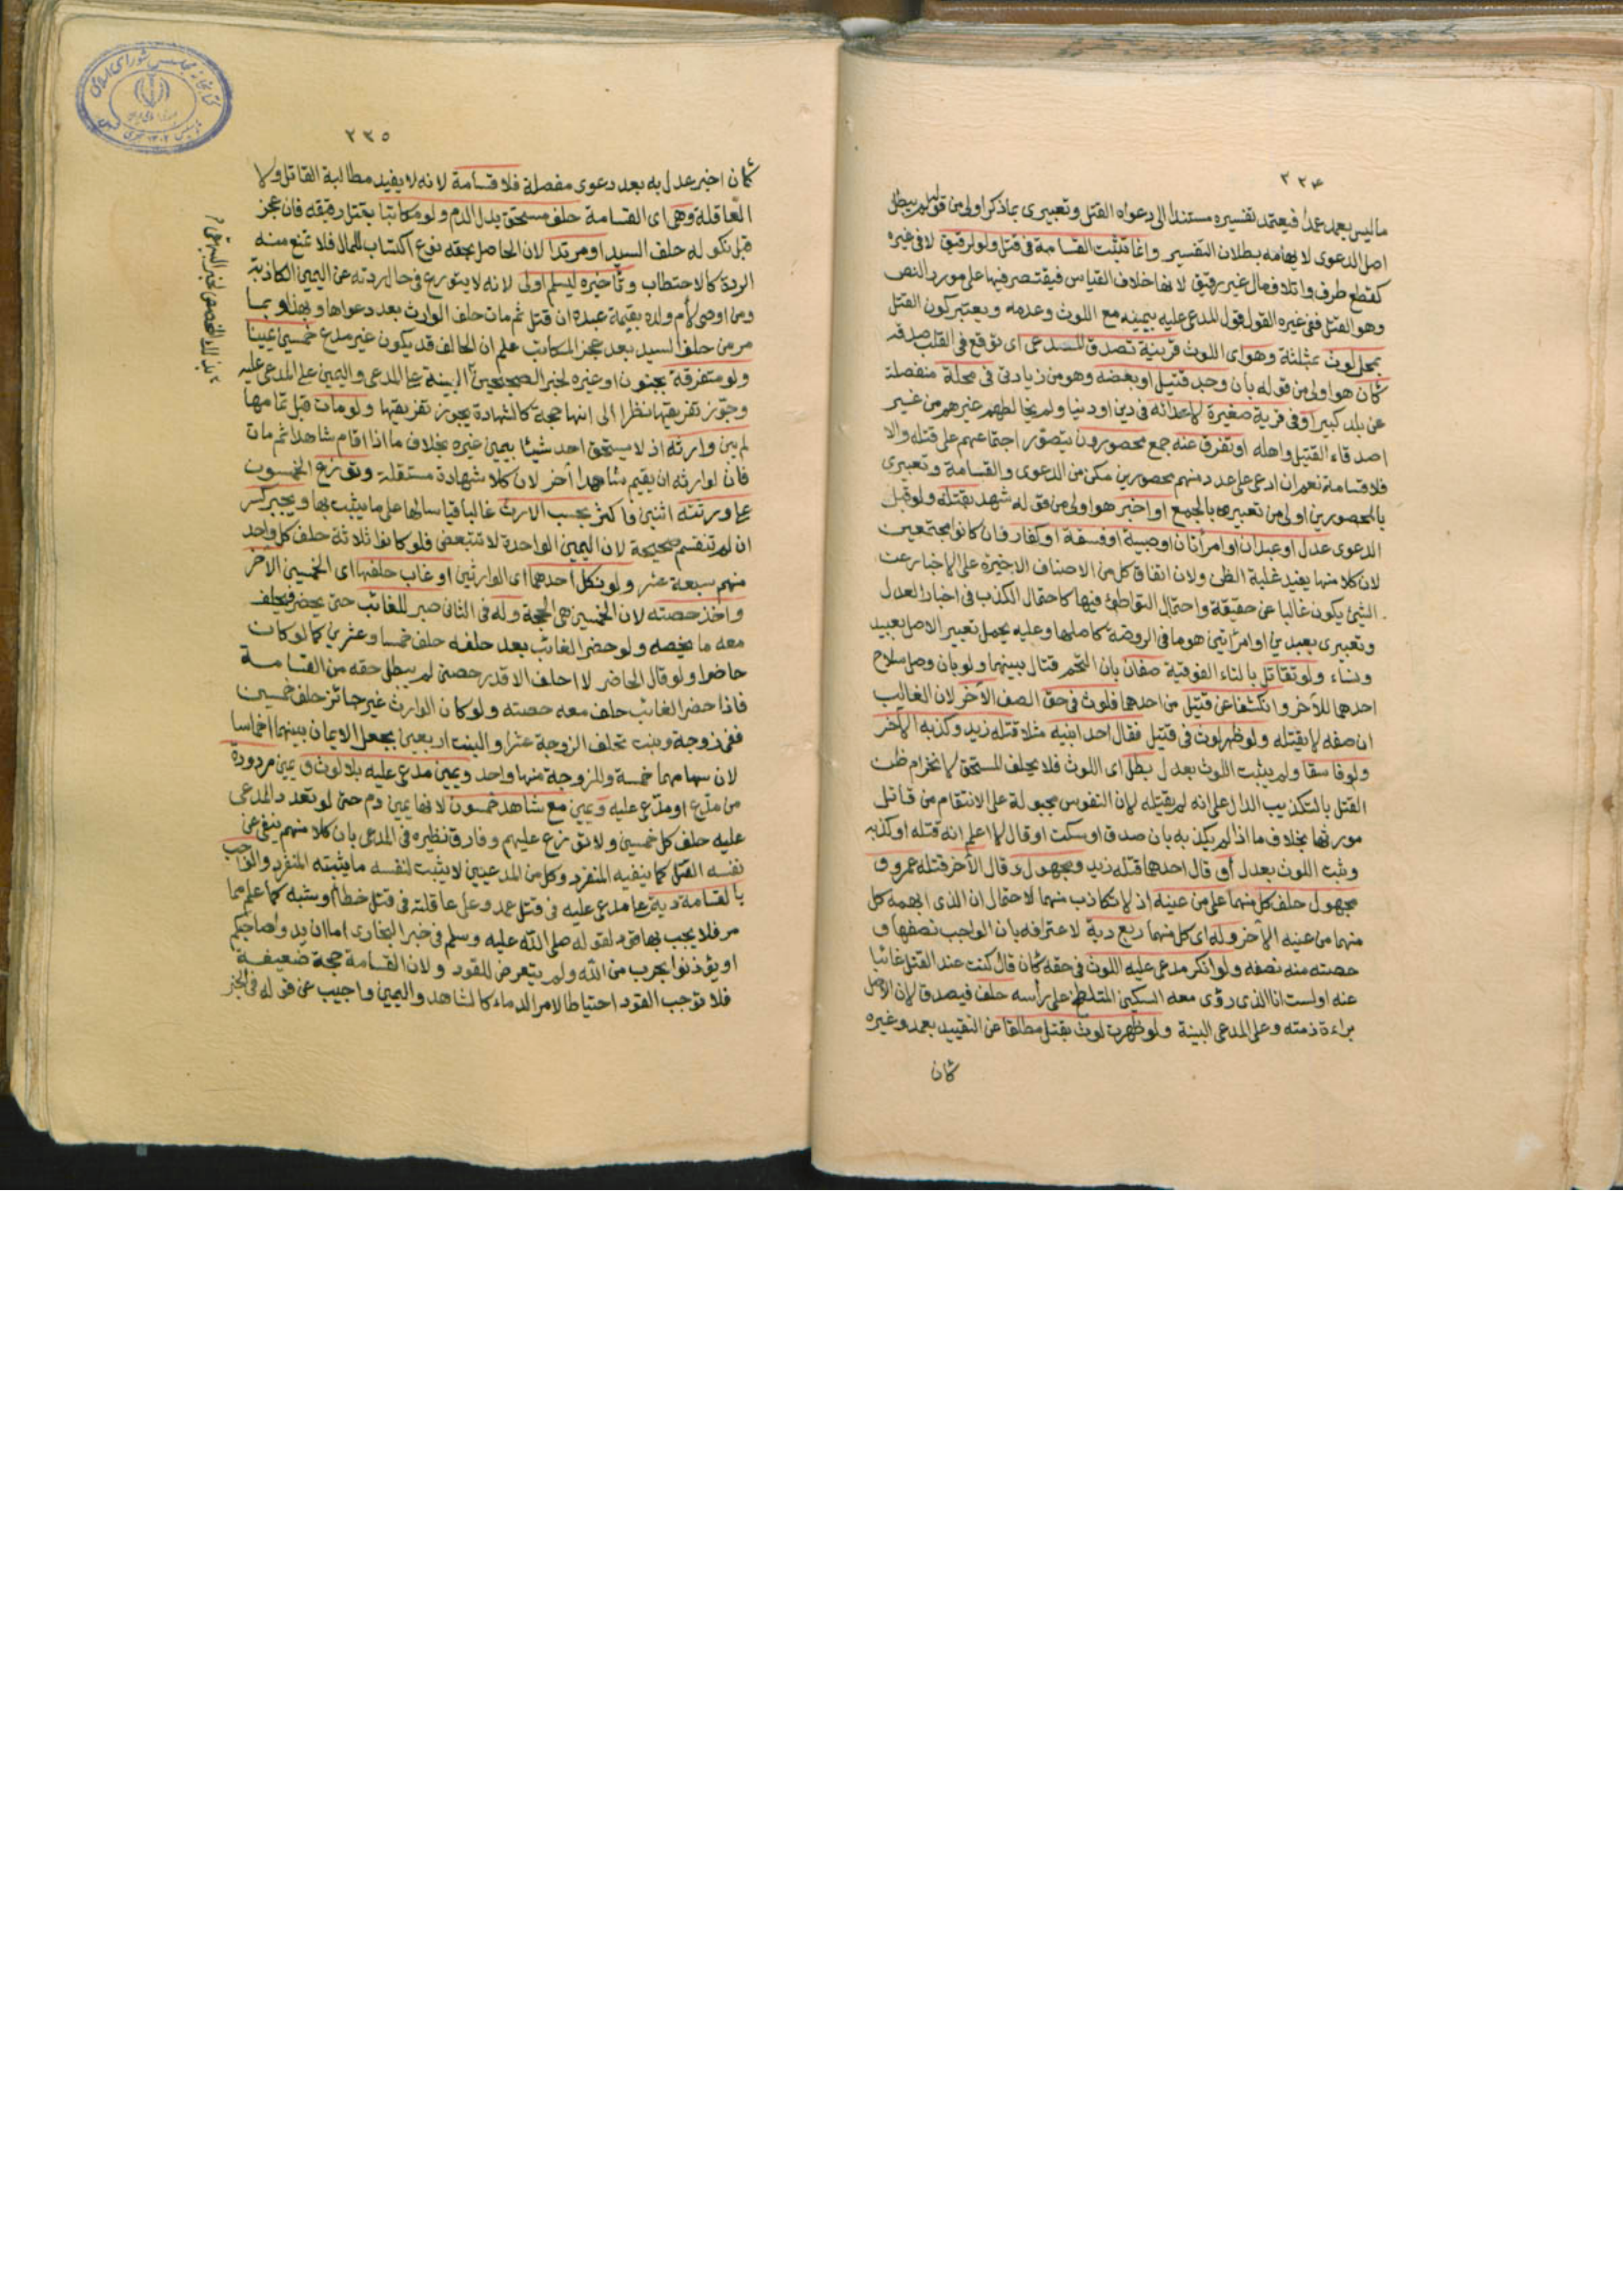 ٢٣٤
ما ليس بعمد عمدا فيعتمد تفسيره مستندا الى دعواه القتل وتعبيرى بما ذكر اولى من قوله لم يبطل
اصل الدعوى لايهامه بطلان التفسير وانما تثبت القسامة فى قتل ولو لرقيق لا فى غيره
كقطع طرف واتلاف مال غير رقيق لانها خلاف القياس فيقتصر فيها على مورد النص
وهو القتل ففى غيره القول قول المدعى عليه بيمينه مع اللوث وعدمه ويعتبر كون القتل
بمحل لوث بمثلثة وهو اى اللوث قرينة تصدق المدعى اى توقع فى القلب صدقه
كأن هو اولى من قوله بأن وجد قتيل او بعضه وهو من زيادتى فى محلة منفصلة
عن بلد كبير او فى قرية صغيرة لاعدائه فى دين او دنيا ولم يخالطهم غيرهم من غير
اصدقاء القتيل واهله او تفرق عنه جمع محصورون يتصور اجتماعهم على قتله والا
فلا قسامة نعم ان ادعى على عدد منهم محصورين مكن من الدعوى والقسامة وتعبيرى
بالمحصورين اولى من تعبيره بالجمع او اخبر هو اولى من قوله شهد بقتله ولو قبل
الدعوى عدل او عبدان او امرأتان او صبية او فسقة او كفار وان كانوا مجتمعين
لان كلا منها يفيد غلبة الظن ولان اتفاق كل من الاصناف الاخيرة على الاخبار عن
الشئ يكون غالبا عن حقيقة واحتمال التواطئ فيها كاحتمال الكذب فى اخبار العدل
وتعبيرى بعبدين او امرأتين هو ما فى الروضة كاصلها وعليه يحمل تعبير الاصل بعبيد
ونساء ولو تقاتل بالتاء الفوقية صفان بان التحم قتال بينهما ولو بان وصل سلاح
احدهما للآخر وانكشفا عن قتيل من احدهما فلوث فى حق الصف الآخر لان الغالب
ان صفه لا يقتله ولو ظهر لوث فى قتيل فقال احد ابنيه مثلا قتله زيد وكذبه الآخر
ولو فاسقا ولم يثبت اللوث بعدل بطل اى اللوث فلا يحلف المستحق لانخرام ظن
القتل بالتكذيب الدال على انه لم يقتله لان النفوس مجبولة على الانتقام من قاتل
مورثها بخلاف ما اذا لم يكذبه بان صدق او سكت او قال لا اعلم انه قتله او كذبه
وثبت اللوث بعدل او قال احدهما قتله زيد ومجهول وقال الآخر قتله عمرو و
مجهول حلف كل منهما على من عينه اذ لا تكاذب منهما لاحتمال ان الذى ابهمه كل
منهما من عينه الآخر وله اى كل منهما ربع دية لاعترافه بان الواجب نصفها و
حصته منه نصفه ولو انكر مدعى عليه اللوث فى حقه كأن قال كنت عند القتل غائبا
عنه او لست انا الذى رؤى معه السكين المتلطخ على رأسه حلف فيصدق لان الاصل
براءة ذمته وعلى المدعى البينة ولو ظهر لوث بقتل مطلقا عن التقييد بعمد وغيره
كأن
٢٣٥
كأن اخبر عدل به بعد دعوى مفصلة فلا قسامة لانه لا يفيد مطالبة القاتل ولا
العاقلة وهى اى القسامة حلف مستحق بدل الدم ولو مكاتبا بقتل رقيقه فان عجز
قبل نكوله حلف السيد او مرتدا لان الحاصل بحلفه نوع اكتساب للمال فلا تمنع منه
الردة كالاحتطاب وتأخيره ليسلم اولى لانه لا يتورع فى حال ردته عن اليمين الكاذبة
ومن اوصى لأم ولده بقيمة عبده ان قتل ثم مات حلف الوارث بعد دعواها وبهذا وبما
مر من حلف السيد بعد عجز المكاتب علم ان الحالف قد يكون غير مدع خمسين يمينا
ولو متفرقة بجنون او غيره لخبر الصحيحين البينة على المدعى واليمين على المدعى عليه
وجوز تفريقها نظرا الى انها حجة كالشهادة يجوز تفريقها ولو مات قبل تمامها
لم يبن وارثه اذ لا يستحق احد شيئا بيمين غيره بخلاف ما اذا اقام شاهدا ثم مات
فان لوارثه ان يقيم شاهدا آخر لان كلا شهادة مستقلة وتوزع الخمسون
على ورثته اثنين فاكثر بحسب الارث غالبا قياسا لها على ما يثبت بها ويجبر كسر
ان لم تنقسم صحيحة لان اليمين الواحدة لا تتبعض فلو كانوا ثلاثة حلف كل واحد
منهم سبعة عشر ولو نكل احدهما اى الوارثين او غاب حلفها اى الخمسين الآخر
واخذ حصته لان الخمسين هى الحجة وله فى الثانى صبر للغائب حتى يحضر فيحلف
معه ما يخصه ولو حضر الغائب بعد حلفه حلف خمسا وعشرين كما لو كان
حاضرا ولو قال الحاضر لا احلف الا قدر حصتى لم يبطل حقه من القسامة
فاذا حضر الغائب حلف معه حصته ولو كان الوارث غير حائز حلف خمسين
ففى زوجة وبنت تحلف الزوجة عشرا والبنت اربعين بجعل الايمان بينهما اخماسا
لان سهامهما خمسة وللزوجة منها واحد ويمين مدعى عليه بلا لوث و يمين مردودة
من مدع او مدعى عليه ويمين مع شاهد خمسون لانها يمين دم حتى لو تعدد المدعى
عليه حلف كل خمسين ولا توزع عليهم وفارق نظيره فى المدعى بان كلا منهم ينفى عن
نفسه القتل كما ينفيه المنفرد وكل من المدعيين لا يثبت لنفسه ما يثبته المنفرد والواجب
بالقسامة دية على مدعى عليه فى قتل عمد وعلى عاقلته فى قتل خطأ او شبه كما علم مما
مر فلا يجب بها قود لقوله صلى الله عليه وسلم فى خبر البخارى اما ان يدوا صاحبكم
او يؤذنوا بحرب من الله ولم يتعرض للقود ولان القسامة حجة ضعيفة
فلا توجب القود احتياطا لامر الدماء كالشاهد واليمين واجيب عن قوله فى الخبر